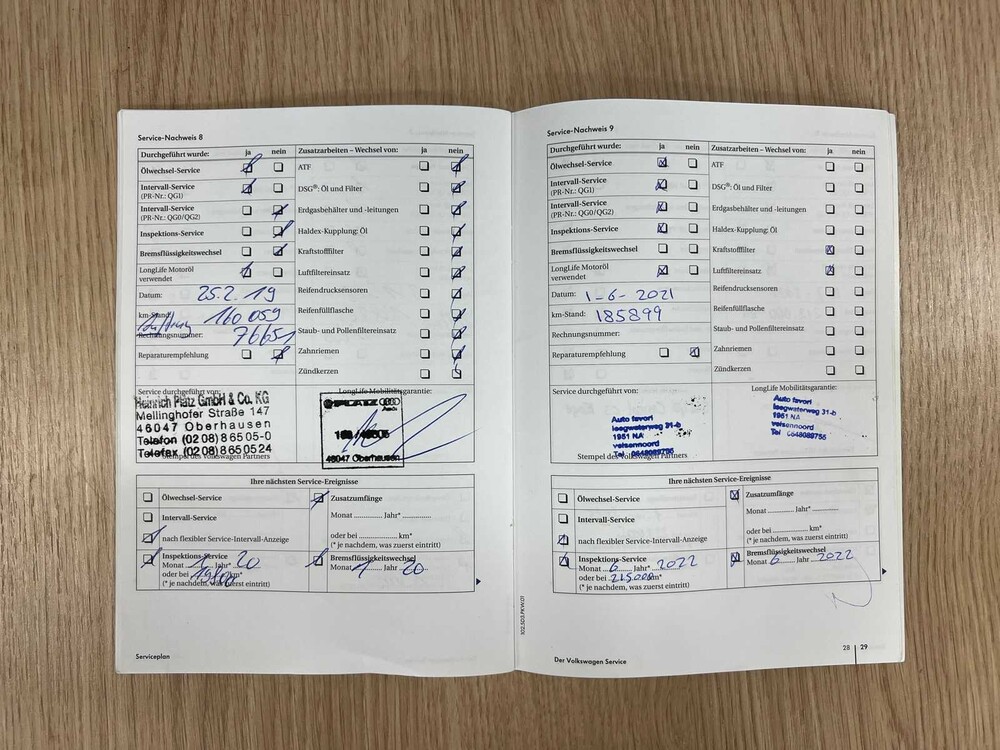 Service-Nachweis 8
Durchgeführt wurde: ja nein Zusatzarbeiten – Wechsel von: ja nein
Ölwechsel-Service
ATF
Intervall-Service
(PR-Nr.: QG1)
DSG®: Öl und Filter
Intervall-Service
(PR-Nr.: QG0/QG2)
Erdgasbehälter und -leitungen
Inspektions-Service
Haldex-Kupplung: Öl
Bremsflüssigkeitswechsel
Kraftstofffilter
LongLife Motoröl
verwendet
Luftfiltereinsatz
Datum: 25.2.19
Reifendrucksensoren
km-Stand: 160 059
Reifenfüllflasche
Rechnungsnummer: 76651
Staub- und Pollenfiltereinsatz
Reparaturempfehlung
Zahnriemen
Zündkerzen
Service durchgeführt von:
LongLife Mobilitätsgarantie:
Heinrich Platz GmbH & Co. KG
Mellinghofer Straße 147
46047 Oberhausen
Telefon (02 08) 8 65 05-0
Telefax (02 08) 8 65 05 24
Stempel des Volkswagen Partners
PLATZ
46047 Oberhausen
Ihre nächsten Service-Ereignisse
Ölwechsel-Service
Zusatzumfänge
Intervall-Service
Monat .............. Jahr* ..............
nach flexibler Service-Intervall-Anzeige
oder bei .............. km*
(* je nachdem, was zuerst eintritt)
Inspektions-Service
Monat Jahr* 20
oder bei km*
(* je nachdem, was zuerst eintritt)
Bremsflüssigkeitswechsel
Monat 1 Jahr 20
Serviceplan
102.5D3.PKW.01
Service-Nachweis 9
Durchgeführt wurde: ja nein Zusatzarbeiten – Wechsel von: ja nein
Ölwechsel-Service
ATF
Intervall-Service
(PR-Nr.: QG1)
DSG®: Öl und Filter
Intervall-Service
(PR-Nr.: QG0/QG2)
Erdgasbehälter und -leitungen
Inspektions-Service
Haldex-Kupplung: Öl
Bremsflüssigkeitswechsel
Kraftstofffilter
LongLife Motoröl
verwendet
Luftfiltereinsatz
Datum: 1-6-2021
Reifendrucksensoren
km-Stand: 185899
Reifenfüllflasche
Rechnungsnummer:
Staub- und Pollenfiltereinsatz
Reparaturempfehlung
Zahnriemen
Zündkerzen
Service durchgeführt von:
LongLife Mobilitätsgarantie:
Auto favori
leegwaterweg 31-b
1951 NA
velsennoord
Tel 0648089755
Stempel des Volkswagen Partners
Auto favori
leegwaterweg 31-b
1951 NA
velsennoord
Tel 0648089755
Ihre nächsten Service-Ereignisse
Ölwechsel-Service
Zusatzumfänge
Intervall-Service
Monat .............. Jahr* ..............
nach flexibler Service-Intervall-Anzeige
oder bei .............. km*
(* je nachdem, was zuerst eintritt)
Inspektions-Service
Monat 6 Jahr* 2022
oder bei 215.000 km*
(* je nachdem, was zuerst eintritt)
Bremsflüssigkeitswechsel
Monat 6 Jahr 2022
Der Volkswagen Service
28 29